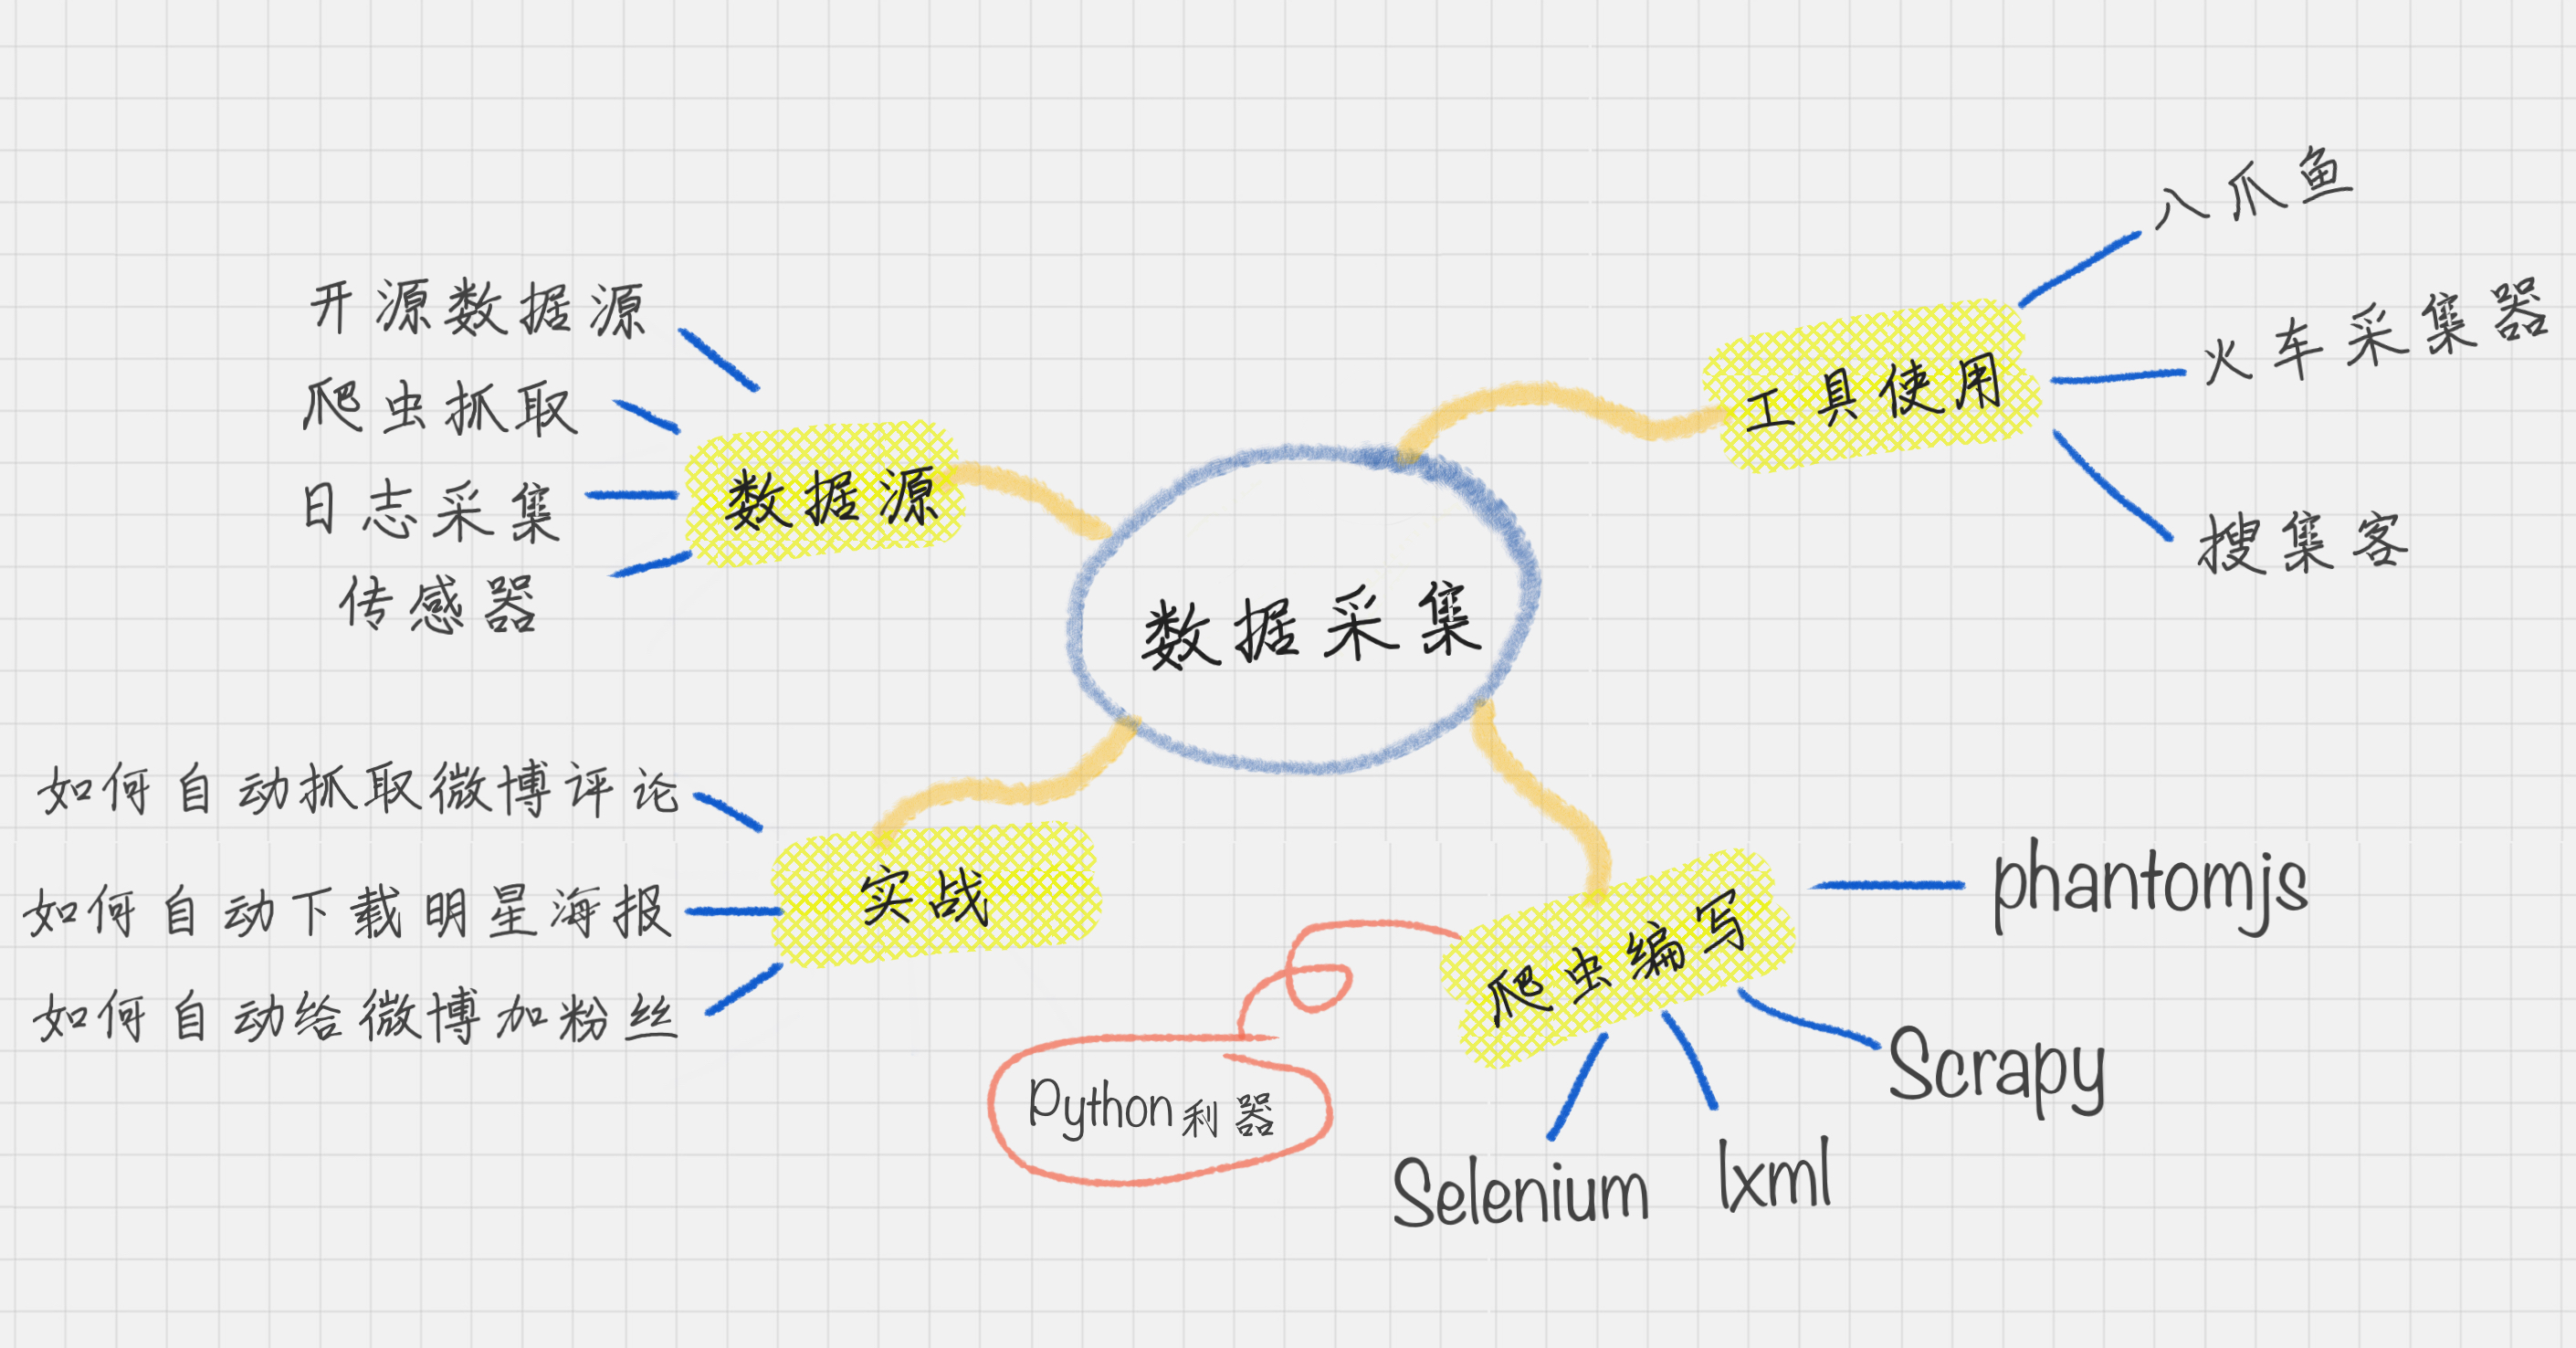 开源数据源
爬虫抓取
日志采集
传感器
数据源
数据采集
工具使用
八爪鱼
火车采集器
搜集客
如何自动抓取微博评论
如何自动下载明星海报
如何自动给微博加粉丝
实战
爬虫编写
phantomjs
Scrapy
lxml
Selenium
Python利器